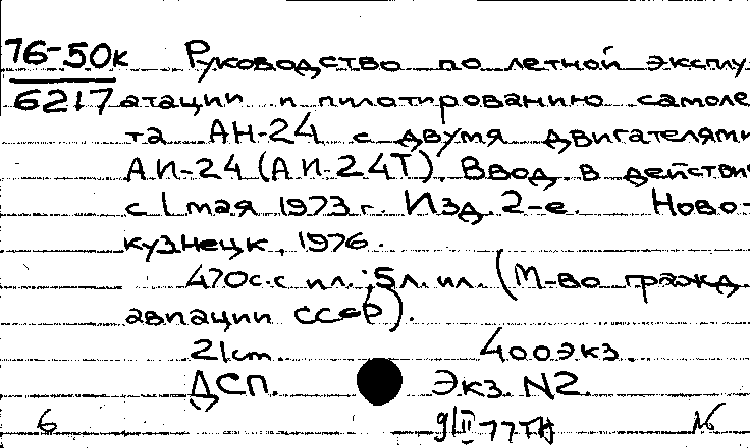 76-50к Руководство по летной эксплу
6217 атации и пилотированию самоле
та АН-24 с двумя двигателями
АИ-24 (АИ-24Т). Ввод в действи
с 1 мая 1973 г. Изд. 2-е. Ново-
кузнецк, 1976.
470с. с ил.; 5л. ил. (М-во гражд.
авиации СССР).
21см. 400экз.
ДСП. Экз. N2.
6 9/II 77